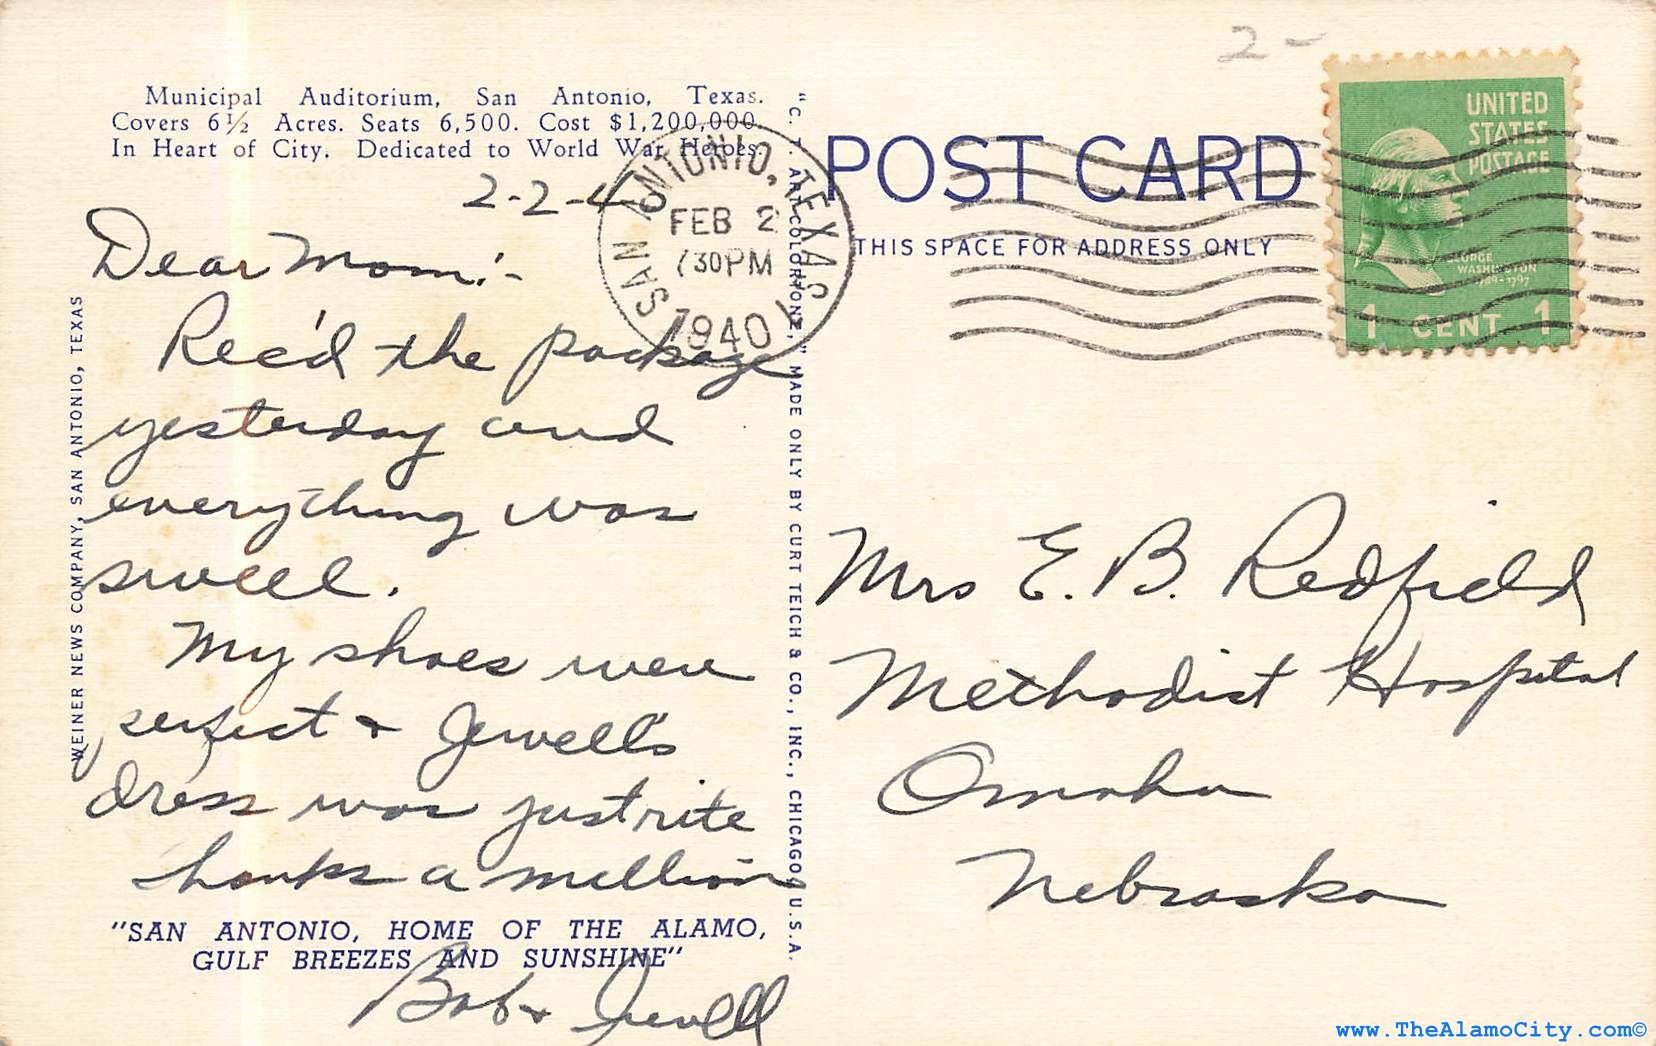 2-
Municipal Auditorium, San Antonio, Texas.
Covers 6½ Acres. Seats 6,500. Cost $1,200,000.
In Heart of City. Dedicated to World War Heroes.
2-2-4
Dear Mom:-
Rec'd the package
yesterday and
everything was
swell.
My shoes were
perfect & Jewell's
dress was just rite
thanks a million
"SAN ANTONIO, HOME OF THE ALAMO,
GULF BREEZES AND SUNSHINE"
Bob & Jewell
WEINER NEWS COMPANY, SAN ANTONIO, TEXAS
"C. T. ART-COLORTONE," MADE ONLY BY CURT TEICH & CO., INC., CHICAGO, U.S.A.
SAN ANTONIO, TEXAS
FEB 2
730PM
1940
POST CARD
THIS SPACE FOR ADDRESS ONLY
UNITED
STATES
POSTAGE
GEORGE
WASHINGTON
1789-1797
1 CENT 1
Mrs E. B. Redfield
Methodist Hospital
Omaha
Nebraska
www.TheAlamoCity.com©